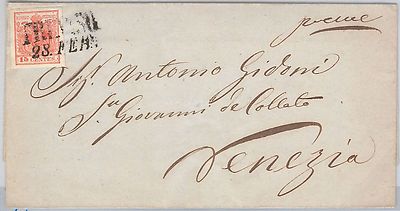 28. FEB.
15 CENTES.
Sig.r Antonio Gidoni
S.n Giovanni de Collato
Venezia